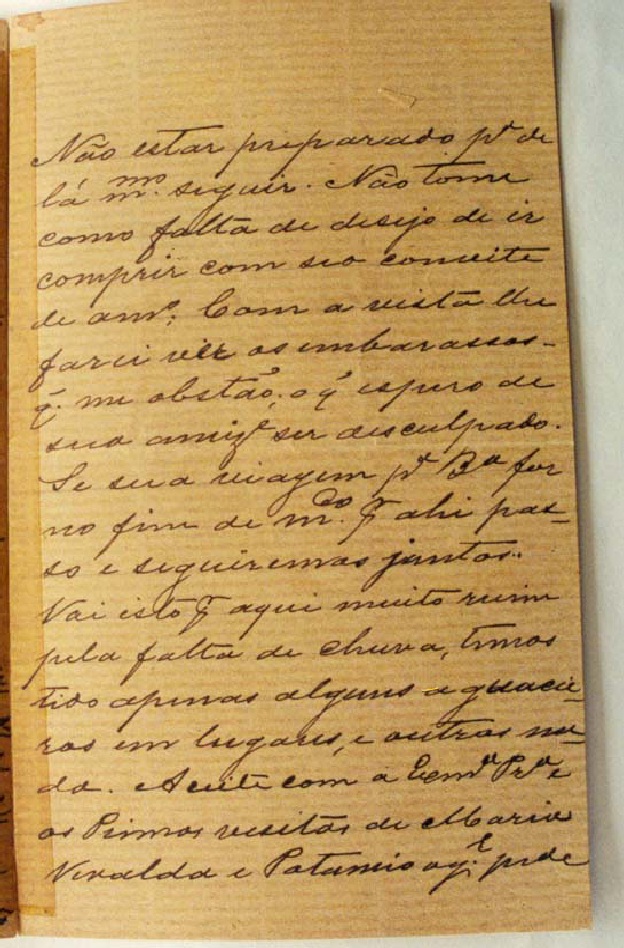 Não estar preparado pª de
lá mmo. seguir. Não tome
como falta de desejo de ir
comprir com seo convite
de amº. Com a vista lhe
farei vêr os embarassos
q. me obstão, o q̃ espero de
sua amizᵉ ser desculpado.
Se sua viagem pª Bª for
no fim de mço. p̱ ahi pas-
so e seguiremos juntos.
Vai isto p̱ aqui muito ruim
pela falta de chuva, temos
tido apenas alguns aguacei-
ros em lugares, e outros na-
da. Aceite com a Exmª Prª e
os Primos visitas de Maria
Nivalda e Potamio o q.l pede